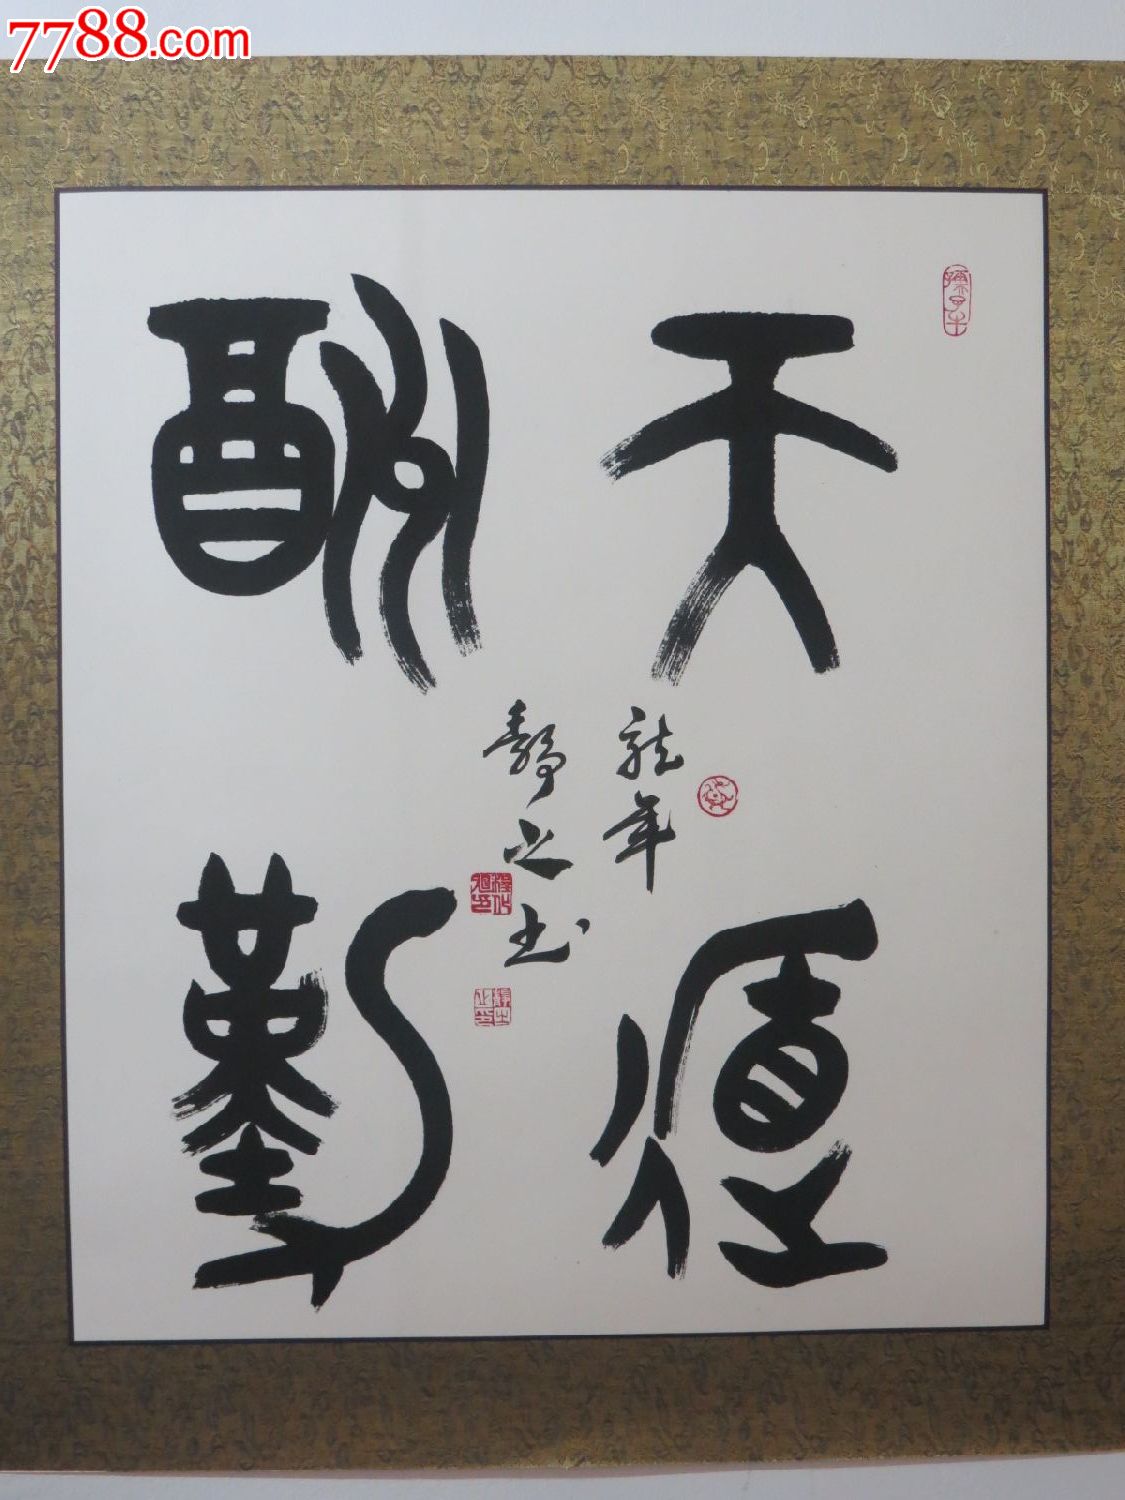 7788.com
天道
酬勤
龍年
靜之书